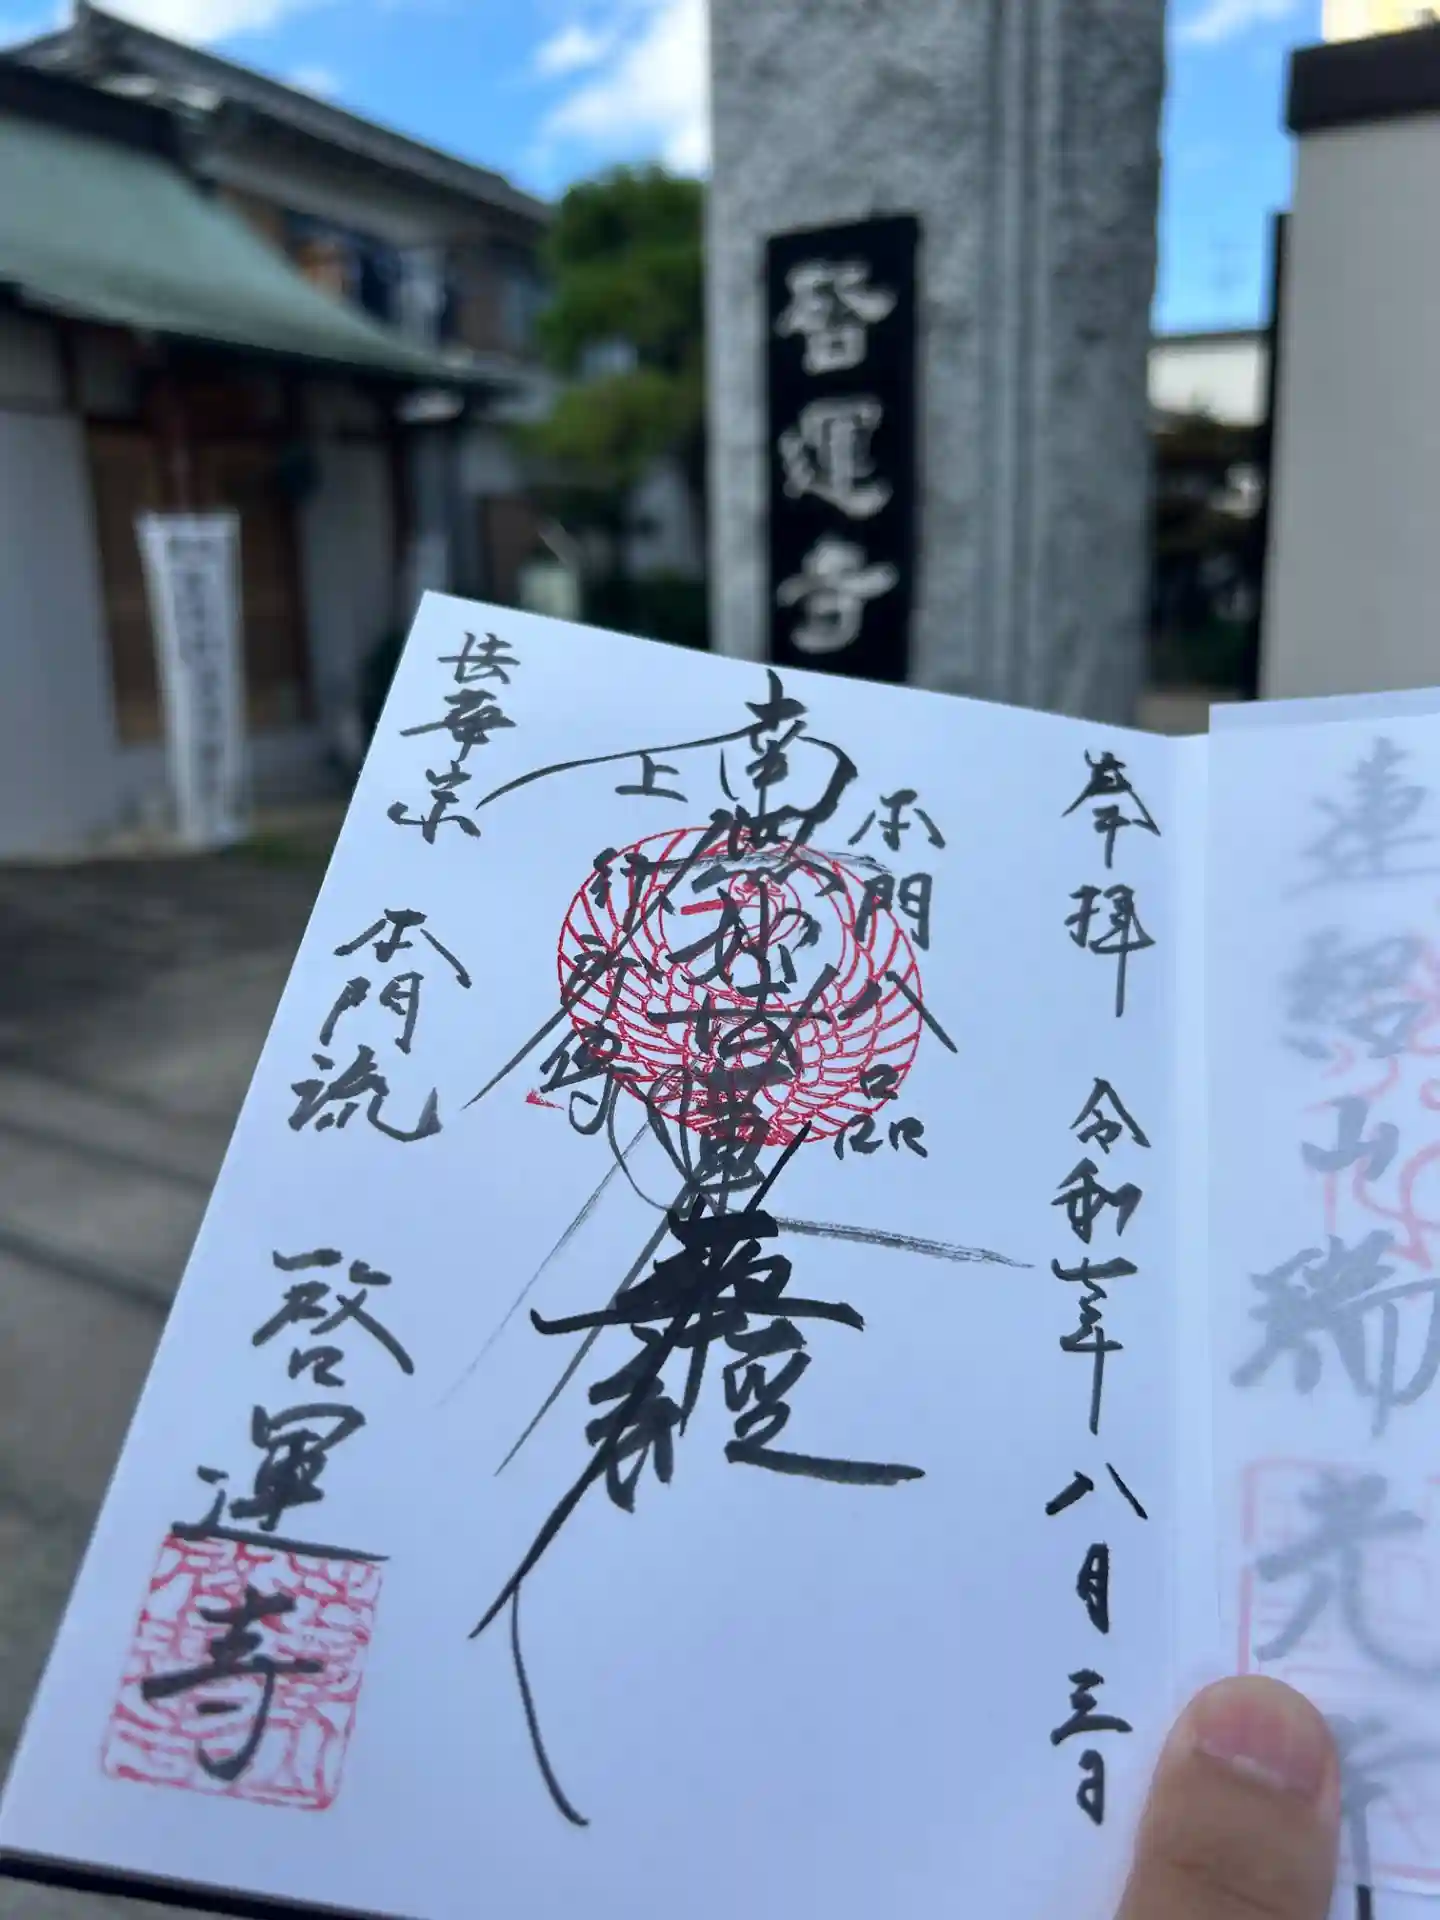 啓運寺
奉拝 令和七年八月三日
本門八品
南無妙法蓮華経
上行所傳
法華宗 本門流 啓運寺
蓮
山
瑞
光
寺